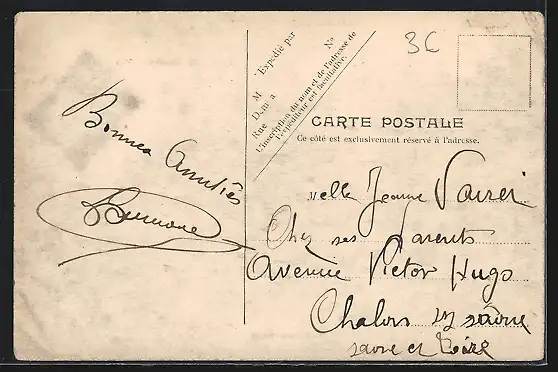 Bonnes Amitiés
Expédié par
M
Dem<sup>t</sup> à
Rue
N°
L'inscription du nom et de l'adresse de
l'expéditeur est facultative.
3€
CARTE POSTALE
Ce côté est exclusivement réservé à l'adresse.
Melle Jeanne
Chez ses Parents
Avenue Victor Hugo
Chalon sur Saône
Saône et Loire